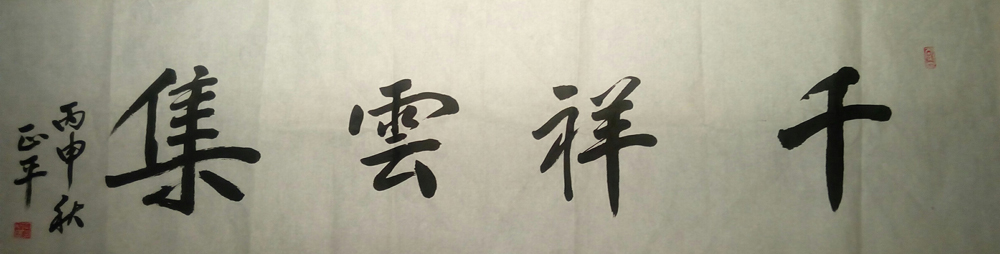 千祥雲集
丙申秋
正平